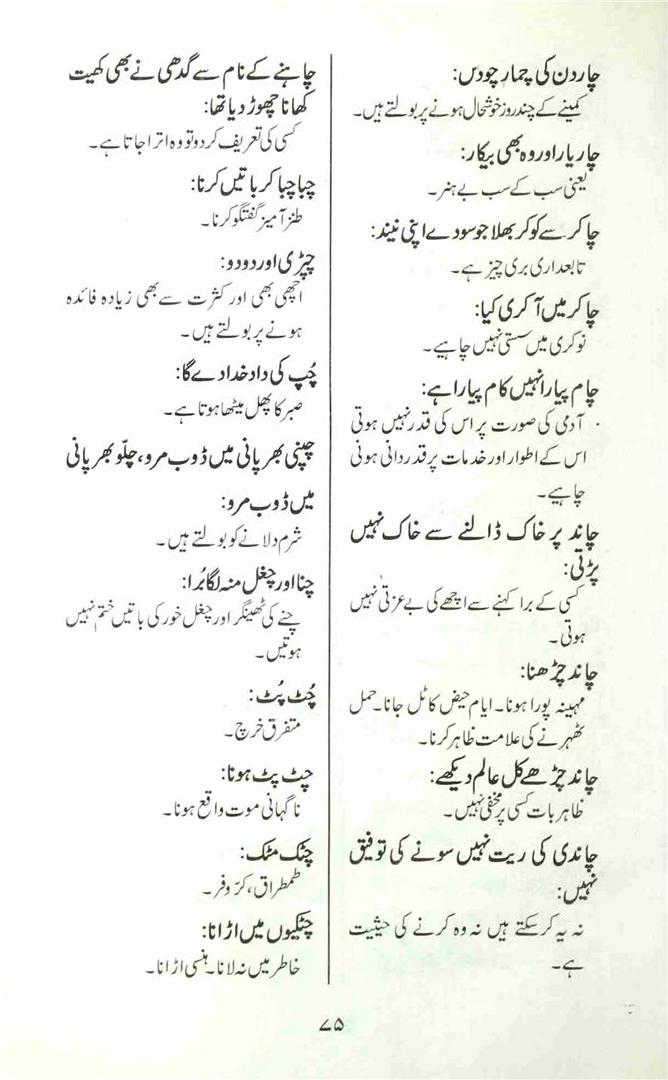 چار دن کی چمار چودس:
کمینے کے چند روز خوشحال ہونے پر بولتے ہیں۔
چار یار اور وہ بھی بیکار:
یعنی سب کے سب بے ہنر۔
چاکر سے کوکر بھلا جو سودے اپنی نیند:
تابعداری بری چیز ہے۔
چاکر میں آ کری کیا:
نوکری میں سستی نہیں چاہیے۔
چام پیارا نہیں کام پیارا ہے:
آدمی کی صورت پر اس کی قدر نہیں ہوتی
اس کے اطوار اور خدمات پر قدر دانی ہونی
چاہیے۔
چاند پر خاک ڈالنے سے خاک نہیں
پڑتی:
کسی کے برا کہنے سے اچھے کی بے عزتی نہیں
ہوتی۔
چاند چڑھنا:
مہینہ پورا ہونا۔ ایام حیض کا ٹل جانا۔ حمل
ٹھہرنے کی علامت ظاہر کرنا۔
چاند چڑھے کل عالم دیکھے:
ظاہر بات کسی پر مخفی نہیں۔
چاندی کی ریت نہیں سونے کی توفیق
نہیں:
نہ یہ کر سکتے ہیں نہ وہ کرنے کی حیثیت
ہے۔
چاہنے کے نام سے گدھی نے بھی کھیت
کھانا چھوڑ دیا تھا:
کسی کی تعریف کر دو تو وہ اترا جاتا ہے۔
چبا چبا کر باتیں کرنا:
طنز آمیز گفتگو کرنا۔
چپڑی اور دو دو:
اچھی بھی اور کثرت سے بھی زیادہ فائدہ
ہونے پر بولتے ہیں۔
چُپ کی داد خدا دے گا:
صبر کا پھل میٹھا ہوتا ہے۔
چپنی بھر پانی میں ڈوب مرو، چلّو بھر پانی
میں ڈوب مرو:
شرم دلانے کو بولتے ہیں۔
چنا اور چغل منہ لگا بُرا:
چنے کی ٹھینگر اور چغل خور کی باتیں ختم نہیں
ہوتیں۔
چُٹ پُٹ:
متفرق خرچ۔
چٹ پٹ ہونا:
ناگہانی موت واقع ہونا۔
چٹک مٹک:
طمطراق، کرّ و فر۔
چٹکیوں میں اڑانا:
خاطر میں نہ لانا۔ ہنسی اڑانا۔
۷۵